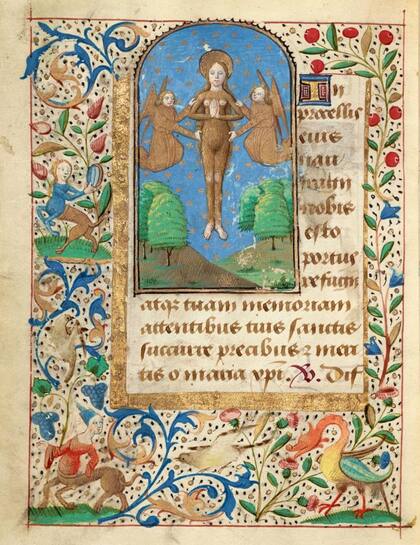 In
eius
nau
nobis
esto
portus
refugii
atqz tuam memoriam
attentibus tuis sanctis
succurre precibus ⁊ meri
tis o maria xpi. V. Dif